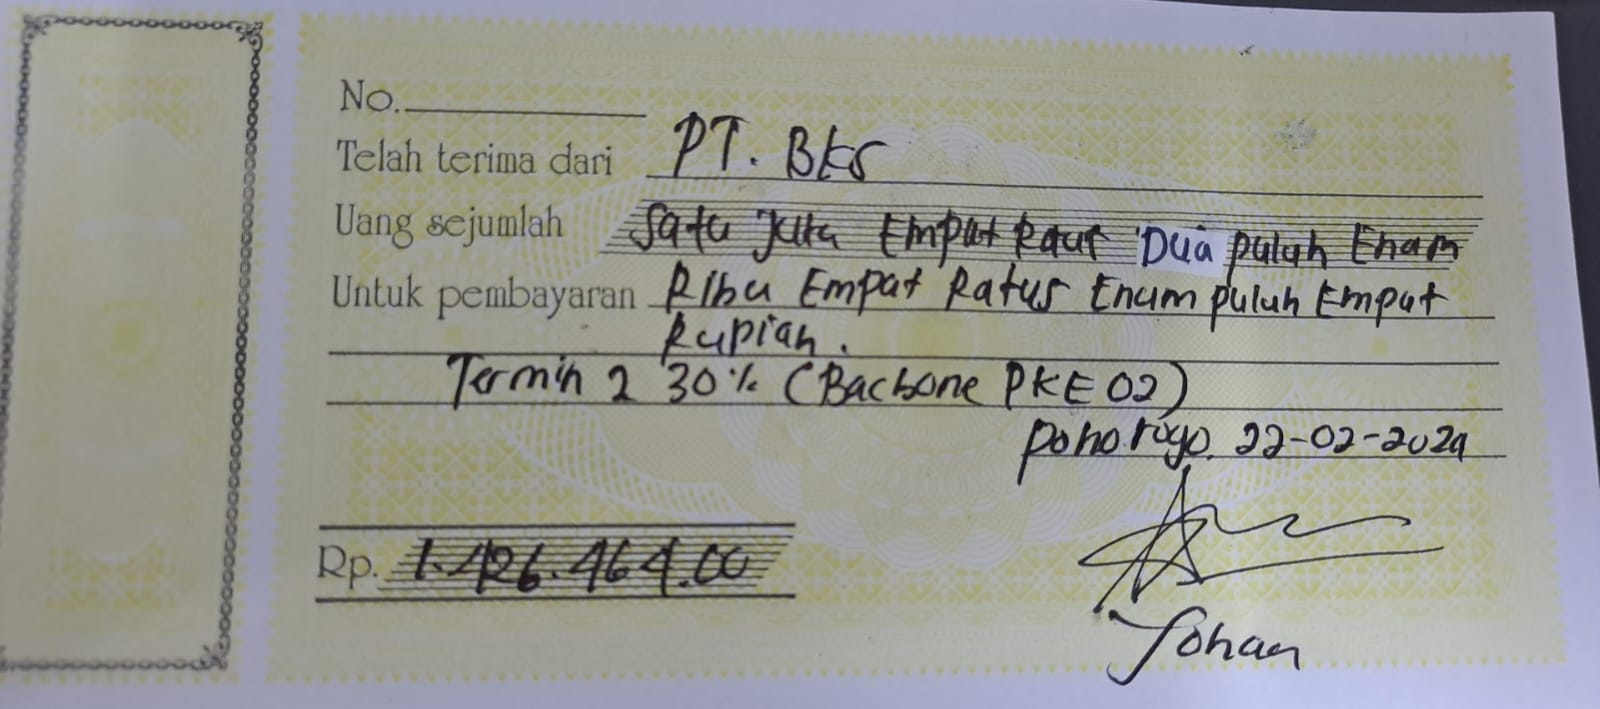 No.
Telah terima dari PT. BKS
Uang sejumlah Satu Juta Empat Ratus Dua puluh Enam
Untuk pembayaran Ribu Empat Ratus Enam puluh Empat
Rupiah.
Termin 2 30% (Backbone PKE 02)
Ponorogo. 22-02-2024
Rp. 1.426.464.00
Johan